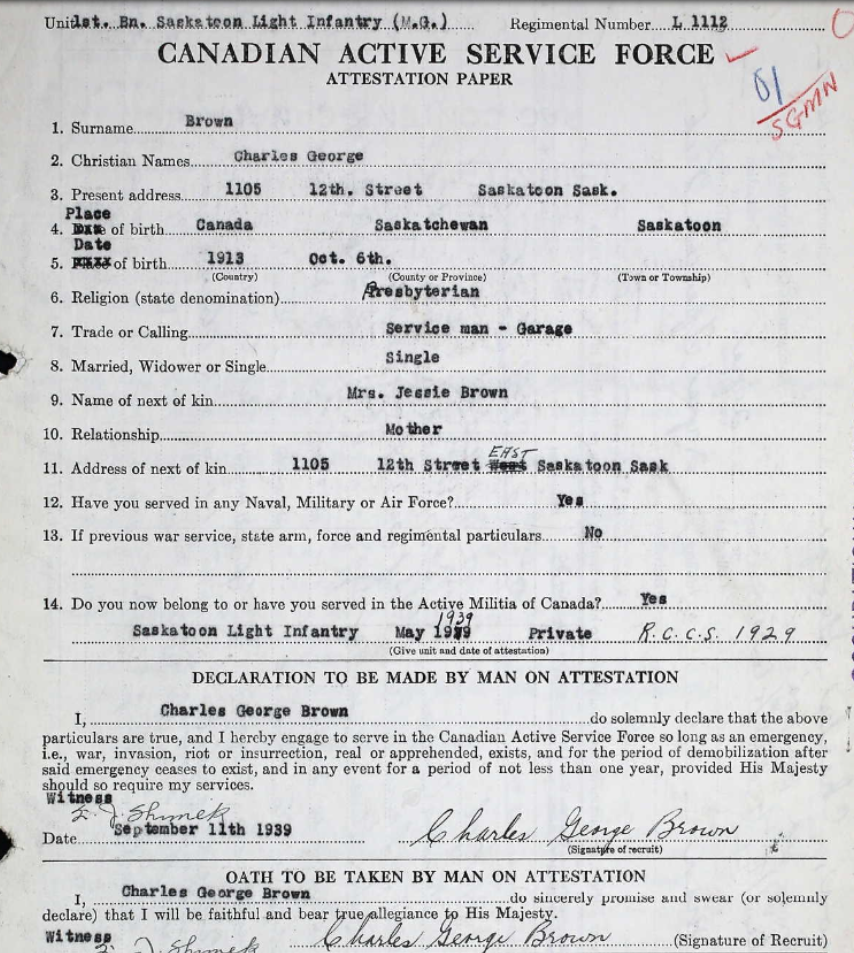 Unit 1st. Bn. Saskatoon Light Infantry (M.G.) Regimental Number L 1112
CANADIAN ACTIVE SERVICE FORCE
ATTESTATION PAPER
SGMN
1. Surname Brown
2. Christian Names Charles George
3. Present address 1105 12th. Street Saskatoon Sask.
Place
4. of birth Canada Saskatchewan Saskatoon
Date
5. of birth 1913 Oct. 6th.
(Country) (County or Province) (Town or Township)
6. Religion (state denomination) Presbyterian
7. Trade or Calling Service man - Garage
8. Married, Widower or Single Single
9. Name of next of kin Mrs. Jessie Brown
10. Relationship Mother
EAST
11. Address of next of kin 1105 12th Street West Saskatoon Sask
12. Have you served in any Naval, Military or Air Force? Yes
13. If previous war service, state arm, force and regimental particulars No
14. Do you now belong to or have you served in the Active Militia of Canada? Yes
1939
Saskatoon Light Infantry May Private R.C.C.S. 1929
(Give unit and date of attestation)
DECLARATION TO BE MADE BY MAN ON ATTESTATION
I, Charles George Brown do solemnly declare that the above
particulars are true, and I hereby engage to serve in the Canadian Active Service Force so long as an emergency,
i.e., war, invasion, riot or insurrection, real or apprehended, exists, and for the period of demobilization after
said emergency ceases to exist, and in any event for a period of not less than one year, provided His Majesty
should so require my services.
Witness
J. Shymek
Date September 11th 1939 Charles George Brown
(Signature of recruit)
OATH TO BE TAKEN BY MAN ON ATTESTATION
I, Charles George Brown do sincerely promise and swear (or solemnly
declare) that I will be faithful and bear true allegiance to His Majesty.
Witness J. Shymek Charles George Brown (Signature of Recruit)